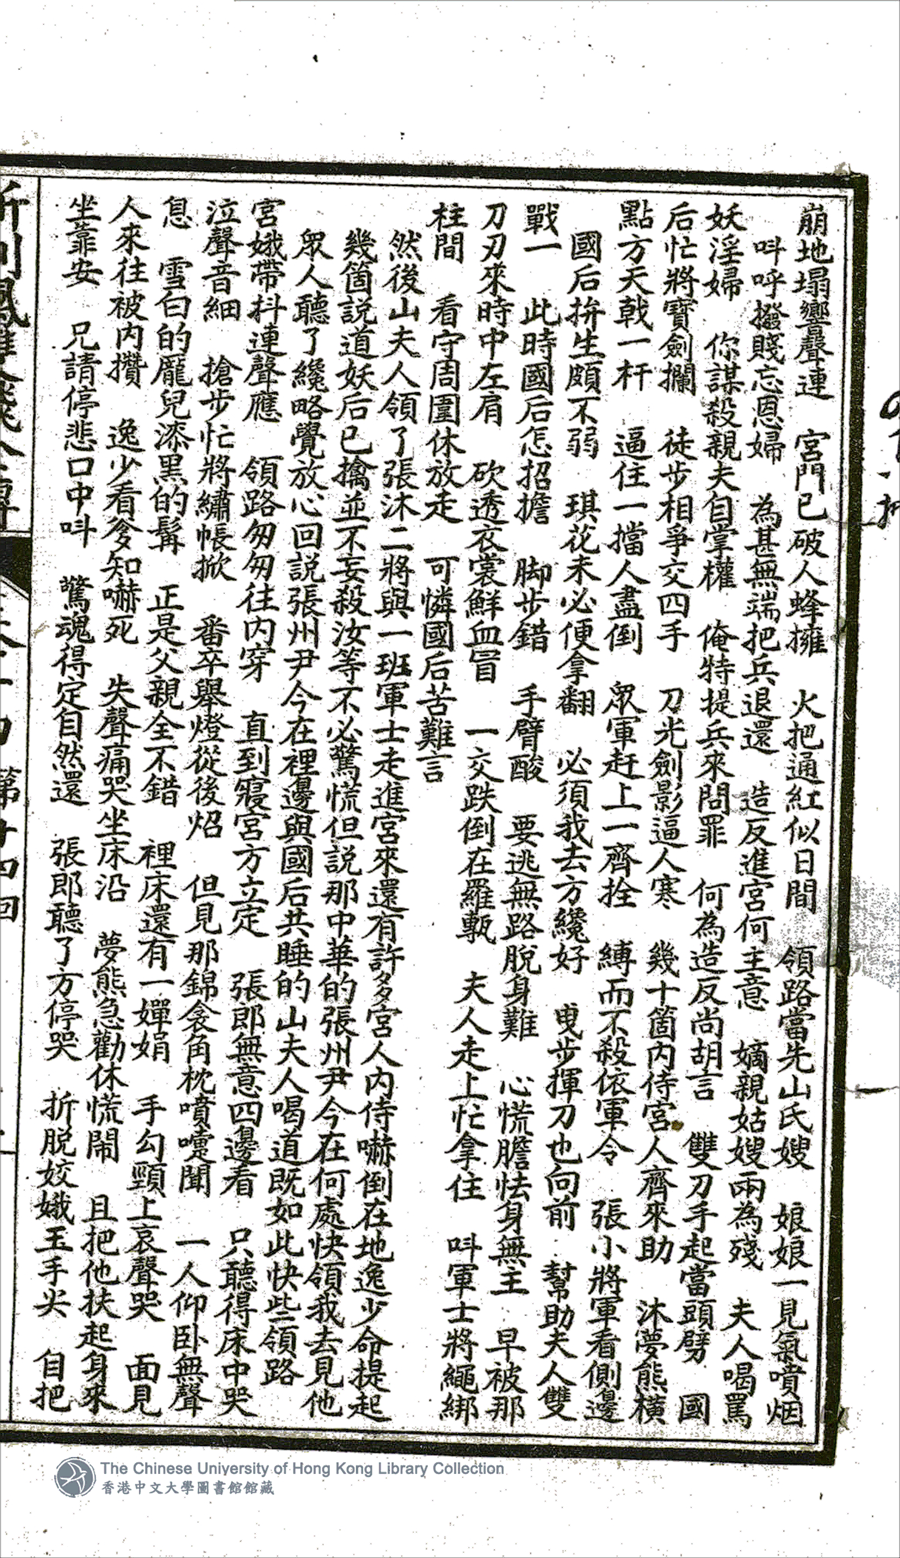 崩地塌響聲連　宮門已破人蜂擁　火把通紅似日間　領路當先山氏嫂　娘娘一見氣噴烟
叫呼撥賤忘恩婦　為甚無端把兵退還　造反進宮何主意　嫡親姑嫂兩為殘　夫人喝罵
妖淫婦　你謀殺親夫自掌權　俺特提兵來問罪　何為造反尚胡言　雙刀手起當頭劈　國
后忙將寶劍攔　徒步相爭交四手　刀光劍影逼人寒　幾十箇內侍宮人齊來助　沐夢熊橫
點方天戟一杆　逼住一擋人盡倒　眾軍赶上一齊拴　縛而不殺依軍令　張小將軍看側邊
國后拚生頗不弱　琪花未必便拿翻　必須我去方纔好　曳步揮刀也向前　幫助夫人雙
戰一　此時國后怎招擔　脚步錯　手臂酸　要逃無路脫身難　心慌膽怯身無主　早被那
刀刃來時中左肩　砍透衣裳鮮血冒　一交跌倒在羅甎　夫人走上忙拿住　叫軍士將繩綁
柱間　看守周圍休放走　可憐國后苦難言
然後山夫人領了張沐二將與一班軍士走進宮來還有許多宮人內侍嚇倒在地逸少命提起
幾箇說道妖后已擒並不妄殺汝等不必驚慌但說那中華的張州尹今在何處快領我去見他
眾人聽了纔略覺放心回說張州尹今在裡邊與國后共睡的山夫人喝道既如此快些領路
宮娥帶抖連聲應　領路匆匆往內穿　直到寢宮方立定　張郎無意四邊看　只聽得床中哭
泣聲音細　搶步忙將繡帳掀　番卒舉燈從後炤　但見那錦衾角枕噴嚏聞　一人仰卧無聲
息　雪白的龐兒漆黑的髯　正是父親全不錯　裡床還有一嬋娟　手勾頸上哀聲哭　面見
人來往被內攢　逸少看爹知嚇死　失聲痛哭坐床沿　夢熊急勸休慌鬧　且把他扶起身來
坐靠安　兄請停悲口中叫　驚魂得定自然還　張郎聽了方停哭　折脫姣娥玉手尖　自把
第十四回
The Chinese University of Hong Kong Library Collection
香港中文大學圖書館館藏